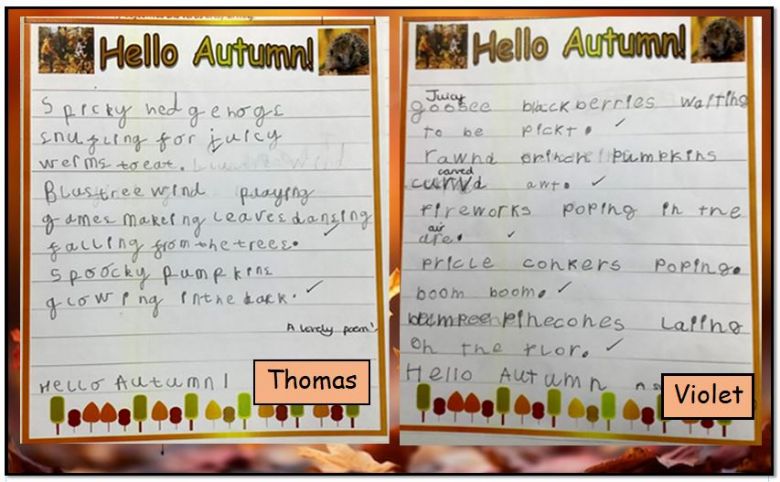 Hello Autumn!
Spicky hedgehogs
snufling for juicy
werms to eat.
Blustree wind playing
games making leaves dansing
falling from the trees.
spoocky pumpkins
glowing in the dark.
A lovely poem!
Hello Autumn!
Thomas
Hello Autumn!
Juicy
goosee blackberries waiting
to be pickt.
rawnd orinch pumpkins
carved
curvd awt.
fireworks poping in the
air
are.
pricle conkers poping.
boom boom.
pinecones Laling
on the flor.
Hello Autumn
Violet